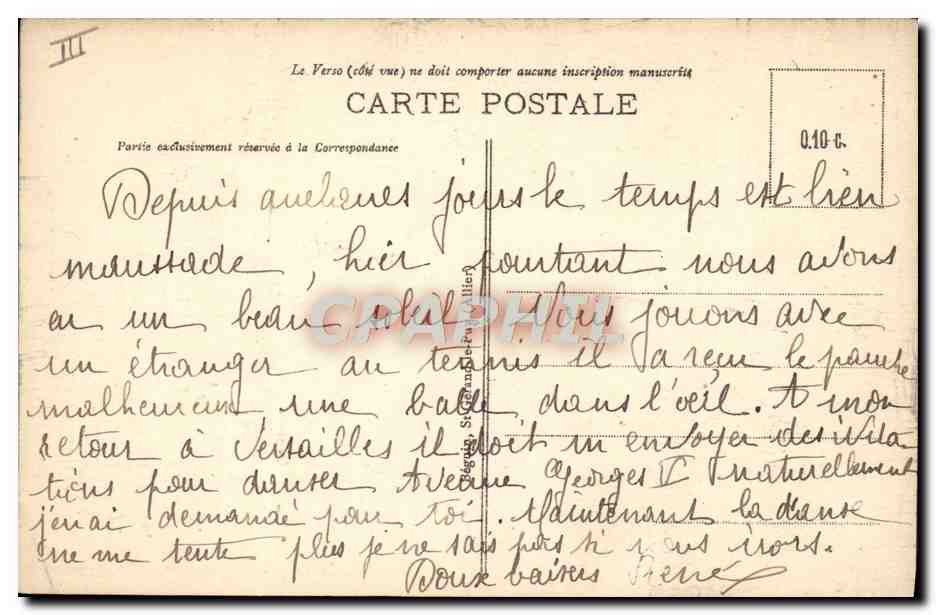 III
Le Verso (côté vue) ne doit comporter aucune inscription manuscrite
CARTE POSTALE
Partie exclusivement réservée à la Correspondance
0.10 c.
Depuis quelques jours le temps est bien
maussade, hier pourtant nous avons
eu un beau soleil. Nous jouons avec
un étranger au tennis il a reçu le pauvre
malheureux une balle dans l'œil. A mon
retour à Versailles il doit m envoyer des invita
tions pour danser Avenue Georges V naturellement
j'en ai demandé pour toi. Maintenant la danse
ne me tente plus je ne sais pas si nous irons.
Doux baisers René
St Gérand-le-Puy (Allier)
CPAPHIL